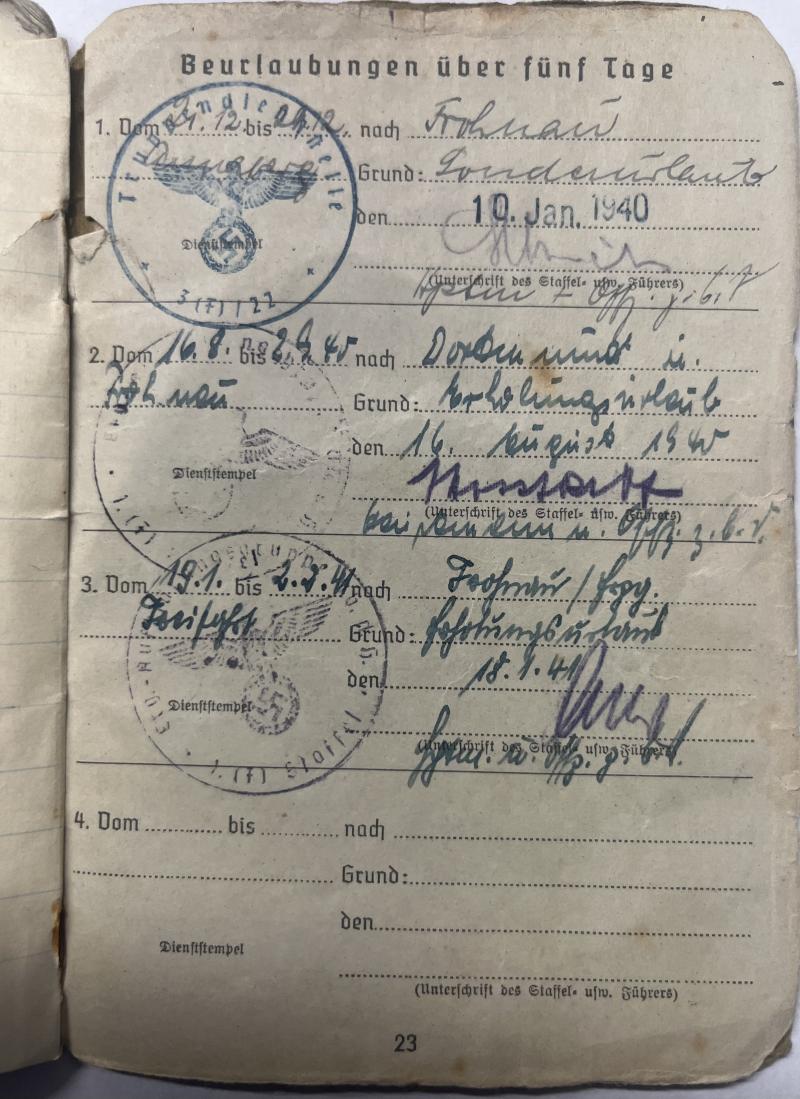 Beurlaubungen über fünf Tage
1. Vom 21.12. bis 29.12. nach Frohnau
Annaberg Grund: Sonderurlaub
den 10. Jan. 1940
Dienststempel
(Unterschrift des Staffel- usw. Führers)
Hptm. u. Offz. z. b. V.
3 (F) / 22
2. Vom 16.8. bis 2.9.40 nach Dortmund u.
Frohnau Grund: Erholungsurlaub
den 16. August 1940
Dienststempel
(Unterschrift des Staffel- usw. Führers)
Hauptmann u. Offz. z. b. V.
1. (F)
3. Vom 19.1. bis 2.2.41 nach Frohnau / Erzg.
Freifahrt Grund: Erholungsurlaub
den 18.1.41
Dienststempel
(Unterschrift des Staffel- usw. Führers)
Hptm. u. Offz. z. b. V.
1. (F) Staffel
4. Vom bis nach
Grund:
den
Dienststempel
(Unterschrift des Staffel- usw. Führers)
23